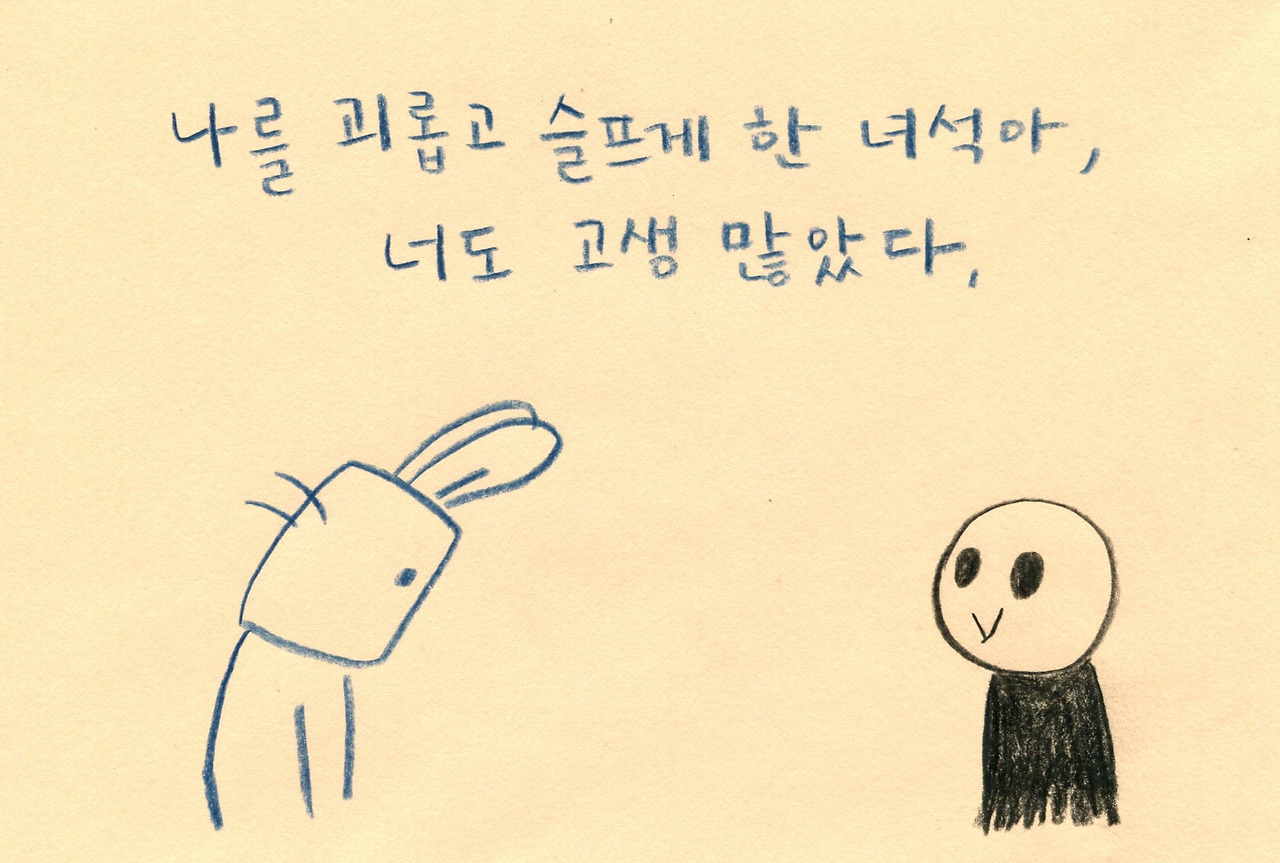 나를 괴롭고 슬프게 한 녀석아,
너도 고생 많았다,